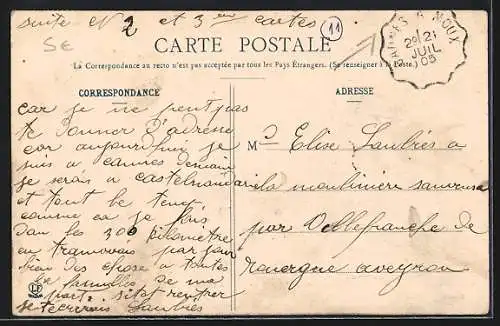 suite N 2 et 3 eme cartes
SE
11
CARTE POSTALE
La Correspondance au recto n'est pas acceptée par tous les Pays Étrangers. (Se renseigner à la Poste.)
2E 21
JUIL
05
CORRESPONDANCE
car je ne peut pas
te donner d'adresse
car aujourd'hui je
suis a cannes demain
je serai a castelnaudari
et tout le temp
comme ca je fais
dan les 300 kilometre
en tramway par jour
bien des chose a toutes
la famille de ma
part
ADRESSE
M Elise Laubrés a
la moulinière
par Villefranche de
rouergue aveyron